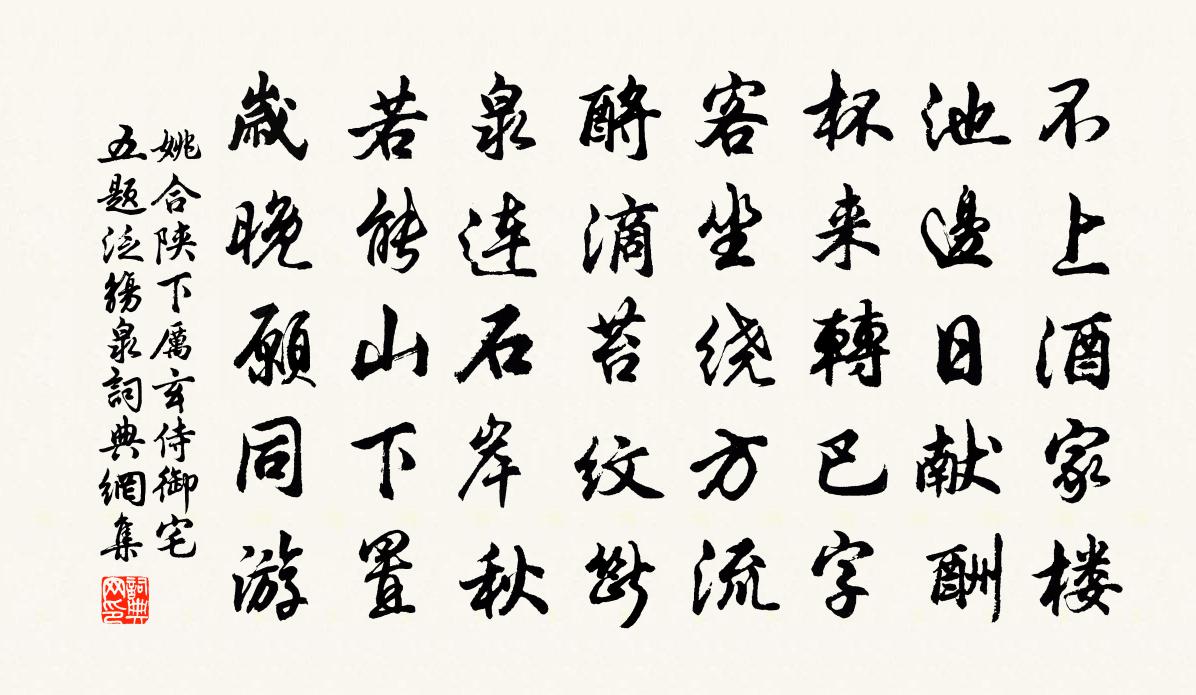 不上酒家楼
池邊日献酬
杯来轉巴字
客坐绕方流
酹滴苔纹断
泉连石岸秋
若能山下置
岁晚願同游
姚合陕下厲玄侍御宅
五题泛觴泉詞典網集
詞典网印